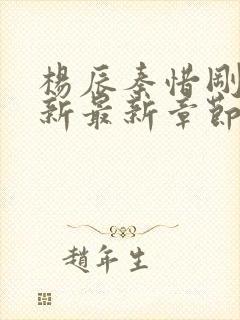 楊辰秦惜剛
新最新章節
趙年生